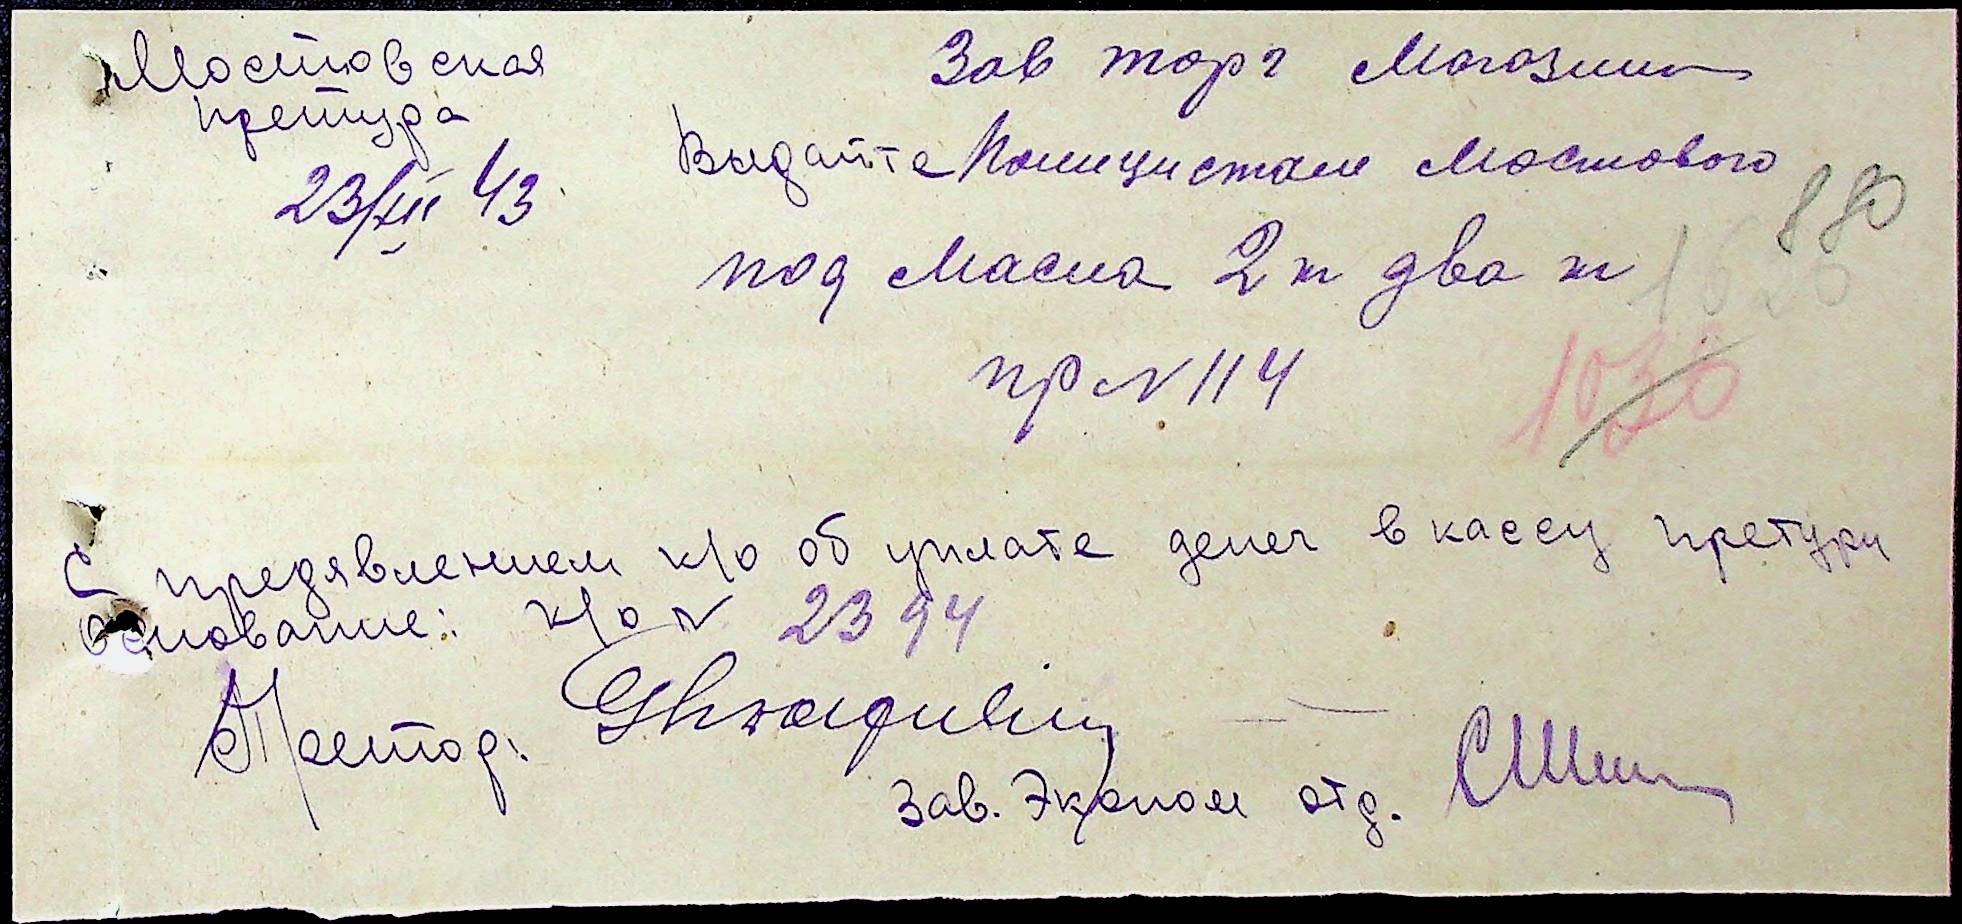 Мостовская
претура
23/XII 43
Зав торг Магазин
Выдайте Полицистам Мостового
под Масла 2 кг два кг
880
пр N 114
1030
С предявлением к/о об уплате денег в кассу претури
основание: к/о N 2394
Претор:
Зав. Эконом отд.